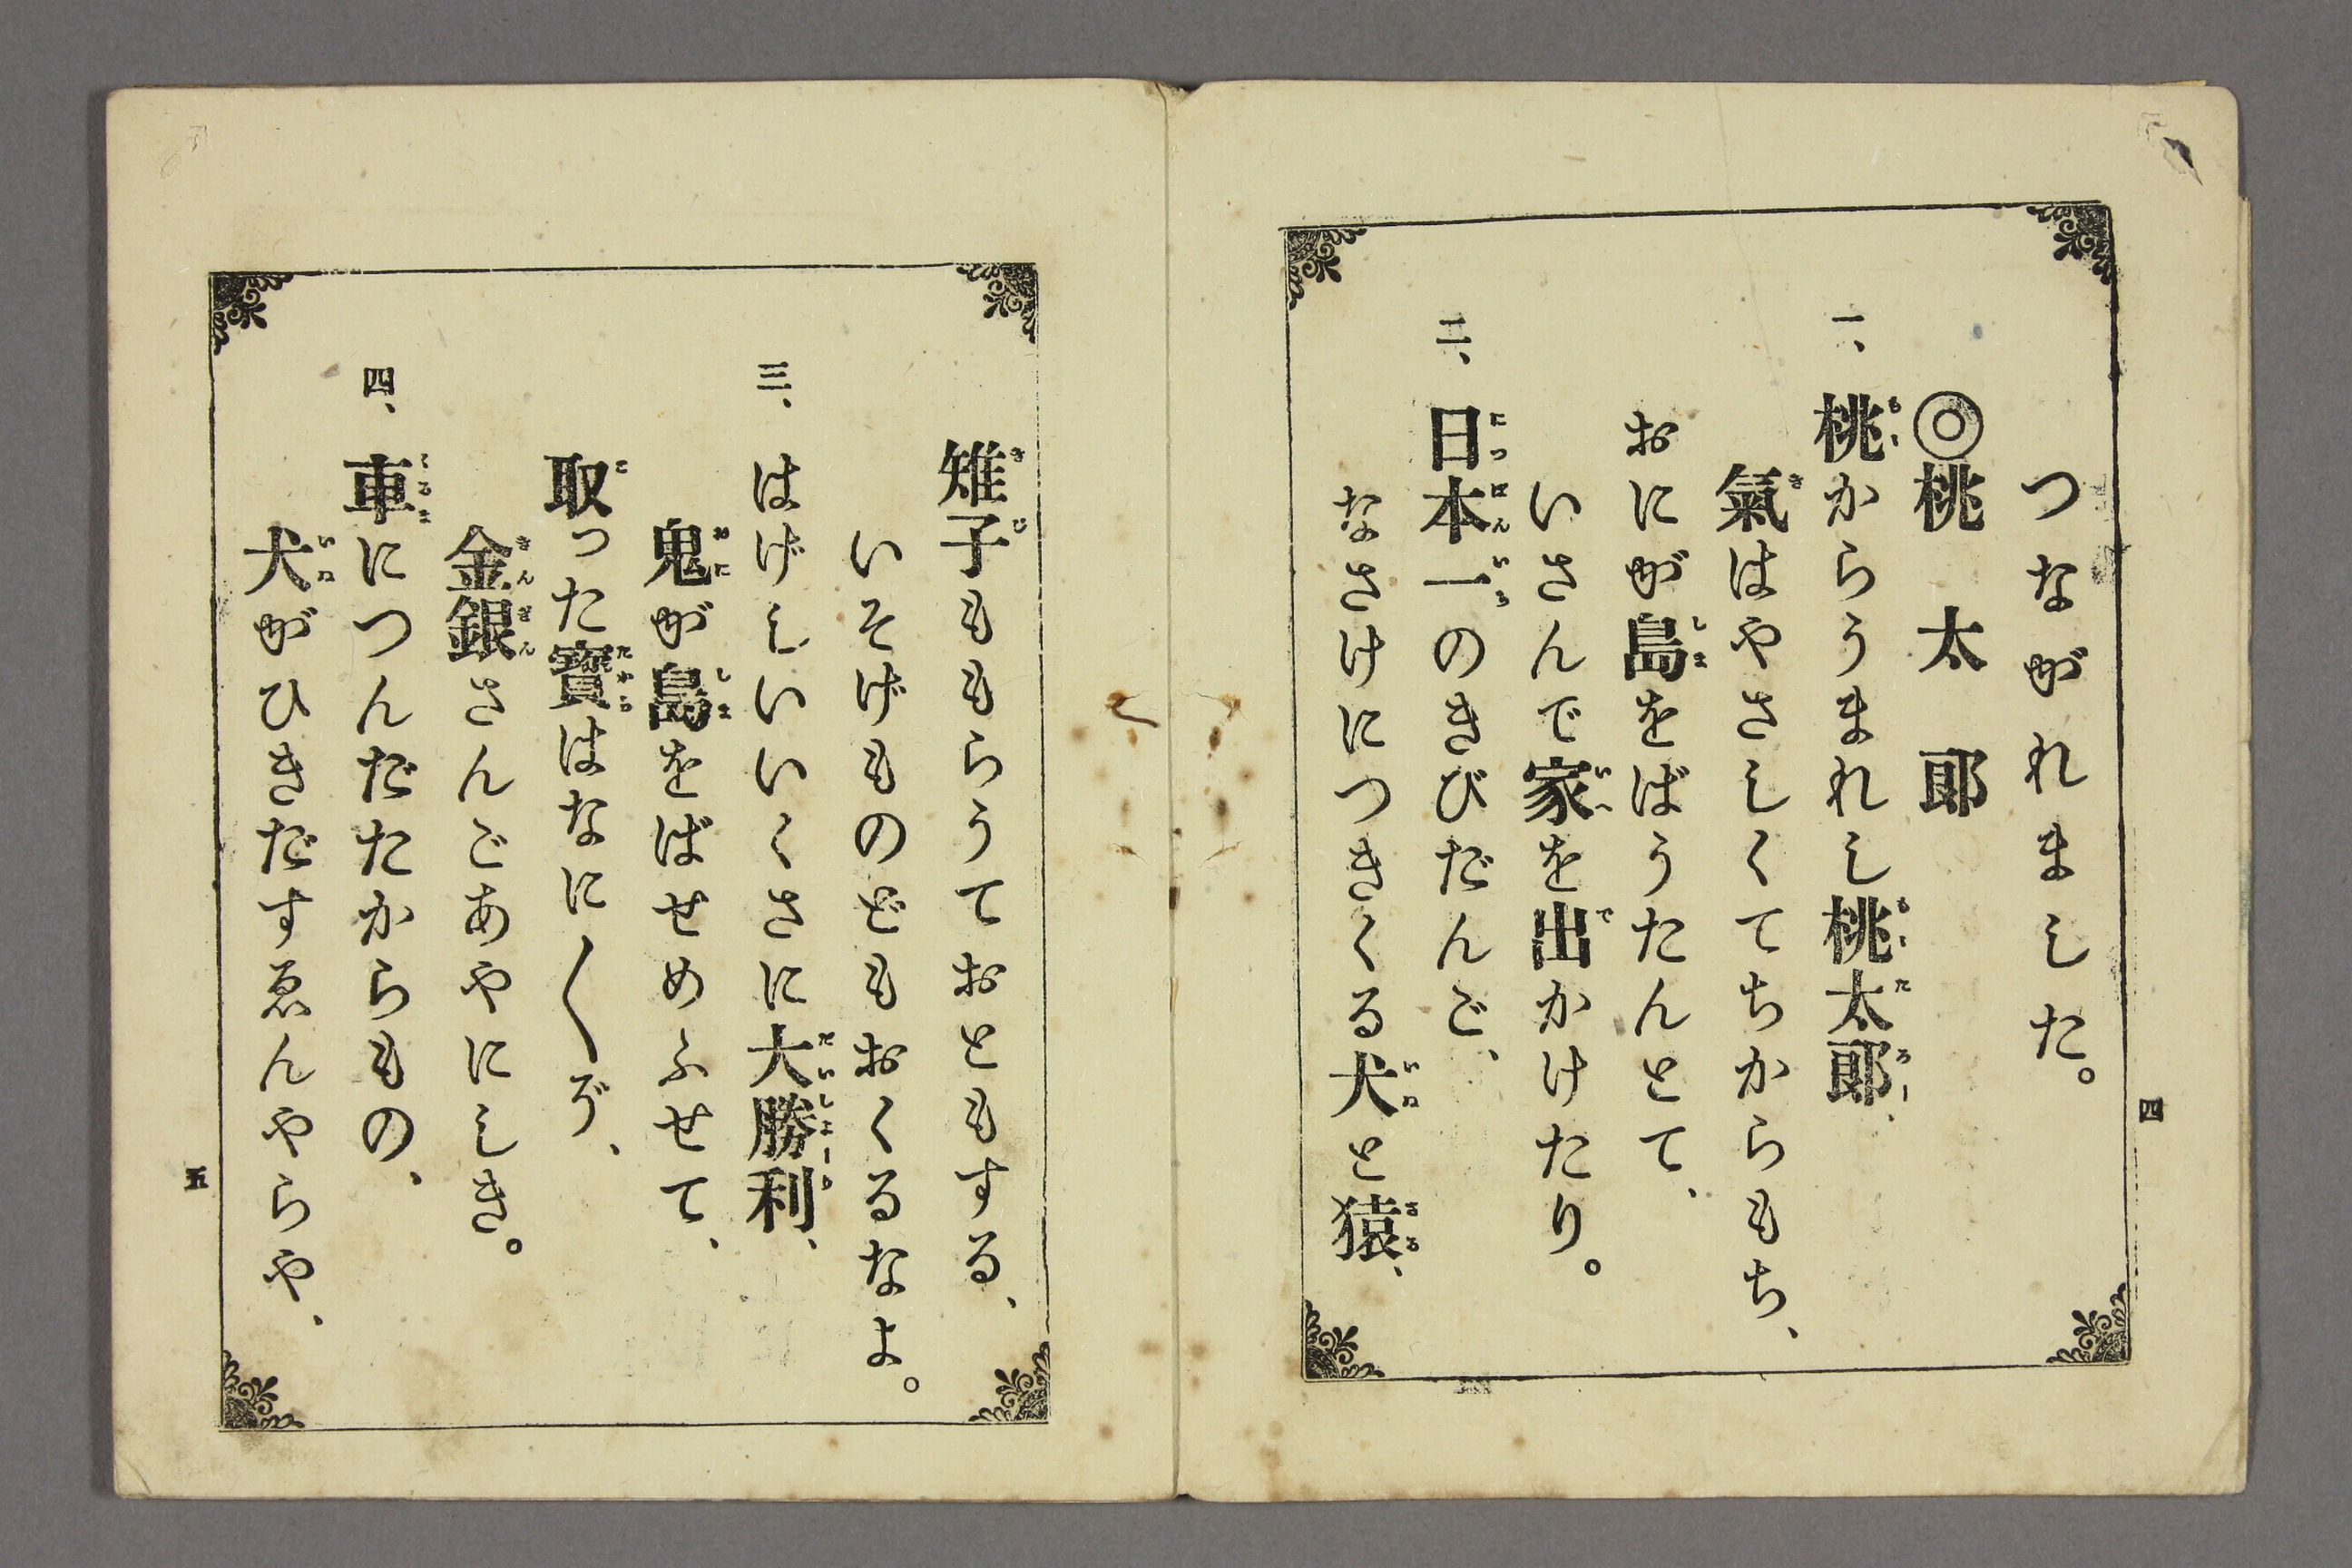 つながれました。
◎桃太郎
一、桃からうまれし桃太郎、
氣はやさしくてちからもち、
おにが島をばうたんとて、
いさんで家を出かけたり。
二、日本一のきびだんご、
なさけにつきくる犬と猿、
四
雉子ももらうておともする、
いそげものどもおくるなよ。
三、はげしいいくさに大勝利、
鬼が島をばせめふせて、
取った寳はなに〳〵ぞ、
金銀さんごあやにしき。
四、車につんだたからもの、
犬がひきだすゑんやらや、
五